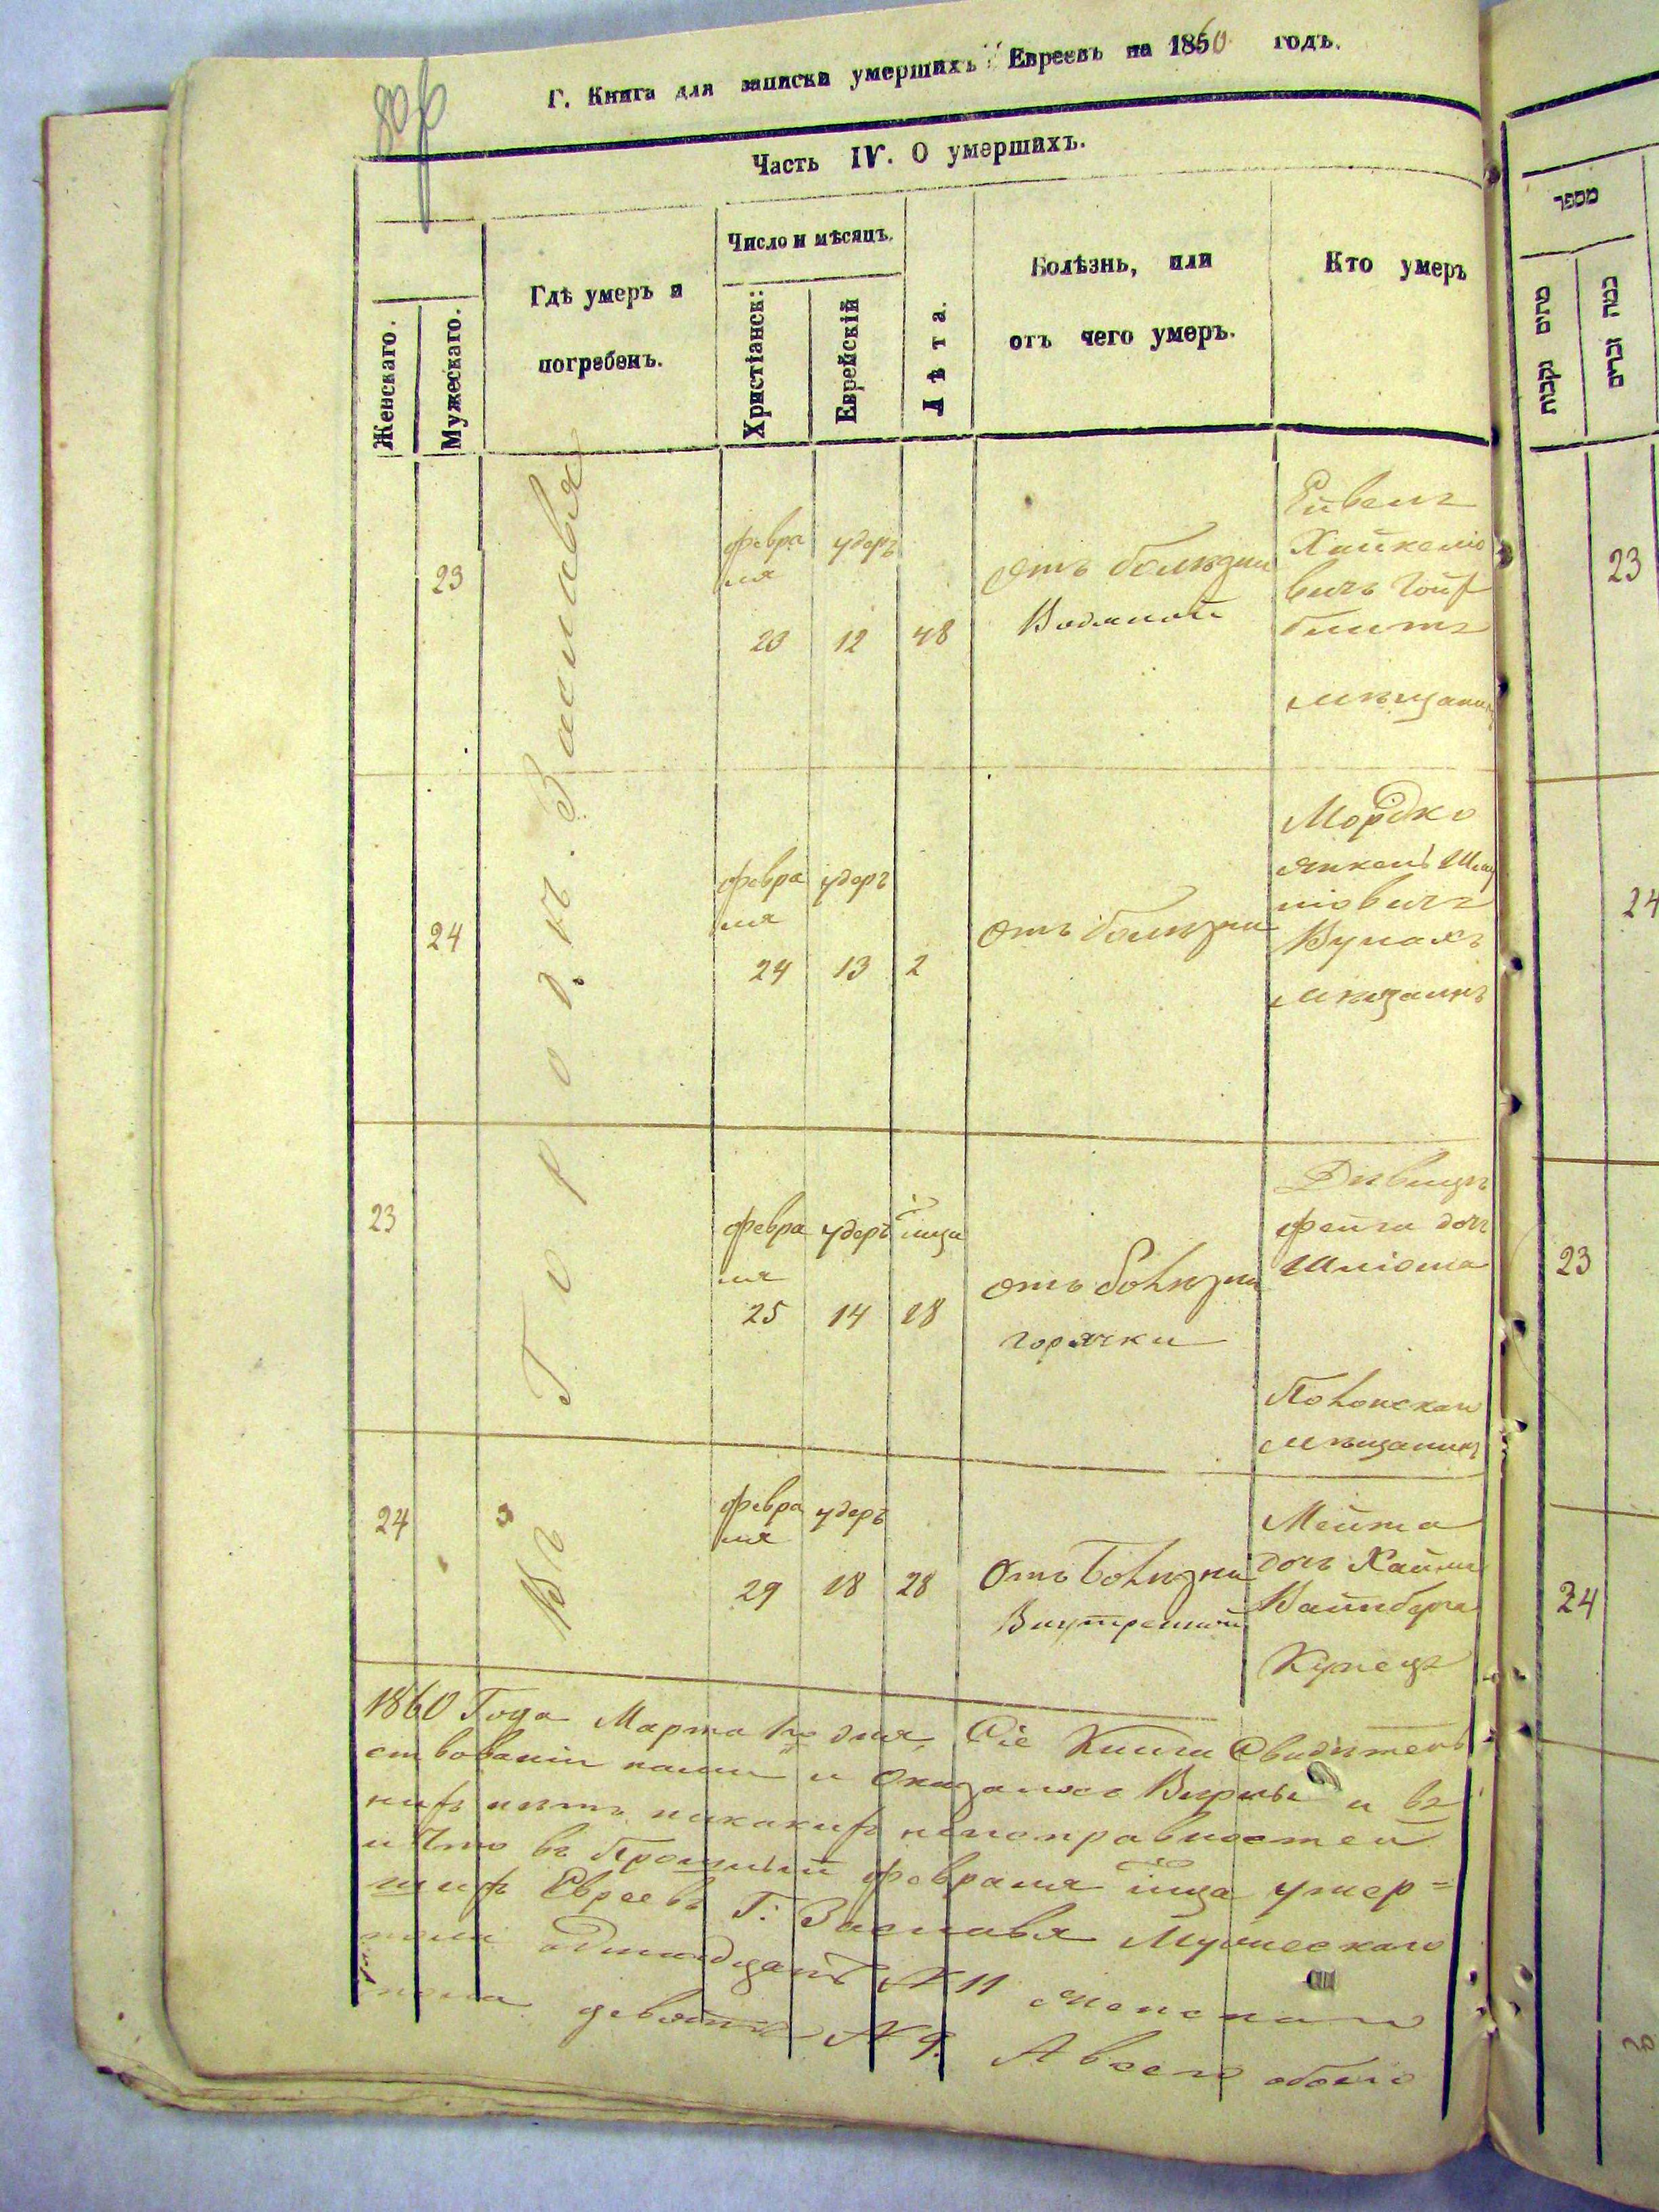 806
Г. Книга для записки умершихъ Евреевъ на 1860 годъ.
Часть IV. О умершихъ.
Женскаго.
Мужескаго.
Гдѣ умеръ и
погребенъ.
Число и мѣсяцъ.
Христіанск:
Еврейскій
Лѣта.
Болѣзнь, или
отъ чего умеръ.
Кто умеръ
Въ Город. Заславля
23
февра
ля
23
удеръ
12
48
Отъ болѣзни
Водяной
Хаикелио
вичъ
мѣщанин
24
февра
ля
24
удеръ
13
2
Отъ болѣзни
Мордко
янкель Шлио
миовичъ
мѣщанинъ
23
февра
ля
25
удеръ
14
18
отъ болѣзни
горячки
Дѣвица
фейга дочь
Шліома
Полонскаго
мѣщанина
24
февра
ля
29
удеръ
18
28
Отъ Болѣзни
Внутренной
дочь Хаима
Вайнберга
Купецъ
1860 Года Марта 1го дня, Сіе Книги Свидѣтель
ствовани нами и Оказалось Вѣрны и въ
нихъ нѣтъ никакихъ неисправностей
и Что въ Прошлый февраля мца умер=
шихъ Евреевъ Г: Заславля Мужескаго
пола одинадцать N 11 женскаго
пола девять N 9. А всего обоего
מספר
מתים נקבות
כמה זכרים
23
24
23
24